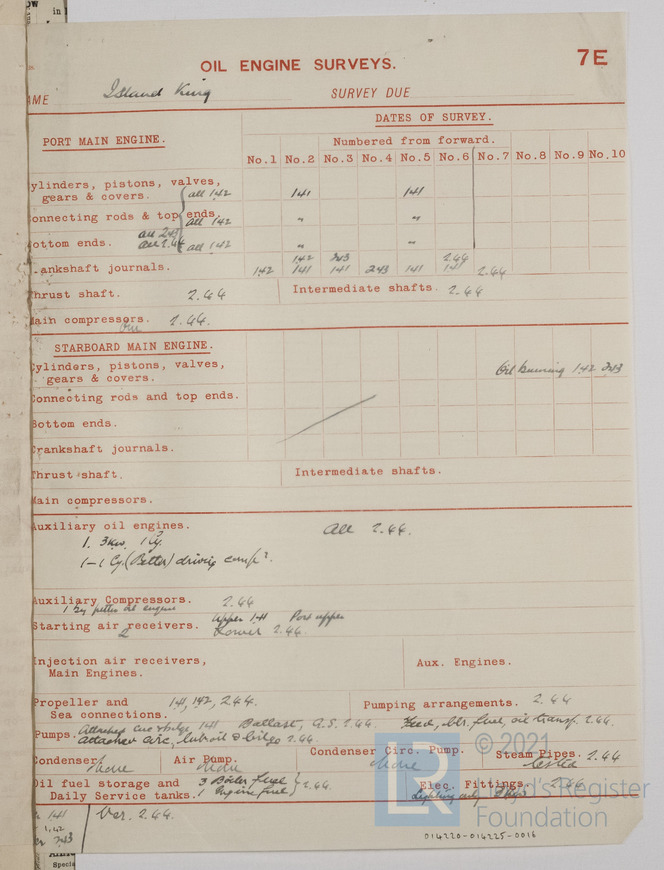 OIL ENGINE SURVEYS. 7E
AME Island King SURVEY DUE
PORT MAIN ENGINE. DATES OF SURVEY.
Numbered from forward.
No.1 No.2 No.3 No.4 No.5 No.6 No.7 No.8 No.9 No.10
ylinders, pistons, valves,
gears & covers. all 1.42 1.41 1.41
onnecting rods & top ends. all 1.42 " "
ottom ends. all 2.43 all 2.44 all 1.42 " "
1.42 2.43 2.44
rankshaft journals. 1.42 1.41 1.41 2.43 1.41 1.41 2.44
hrust shaft. 2.44 Intermediate shafts. 2.44
ain compressors. 2.44.
STARBOARD MAIN ENGINE.
ylinders, pistons, valves, Oil burning 1.42 2.43
gears & covers.
onnecting rods and top ends.
ottom ends.
rankshaft journals.
hrust shaft. Intermediate shafts.
ain compressors.
Auxiliary oil engines. All 2.44.
1. 3Kw. 1 Cy.
1-1 Cy. (Petter) driving compr.
Auxiliary Compressors. 2.44
1 Cy petter oil engine Upper 1.41 Port upper
Starting air receivers. 2 Lower 2.44
Injection air receivers, Aux. Engines.
Main Engines.
Propeller and 1.41, 1.42, 2.44. Pumping arrangements. 2.44
Sea connections.
Pumps. Attached circ & bilge 1.41 Ballast, G.S. 2.44. Feed, blr. fuel, oil transf. 2.44.
Attached circ, lub oil & bilge 2.44.
Condenser None Air Pump. None Condenser Circ. Pump. None Steam Pipes. 2.44 tested
Oil fuel storage and 3 Boiler fuel 2.44. Elec. Fittings. 2.44
Daily Service tanks. 1 Engine fuel Lighting only
1.41 Ver. 2.44.
1.42
2.43
© 2021
LR Lloyd's Register
Foundation
014220-014225-0016